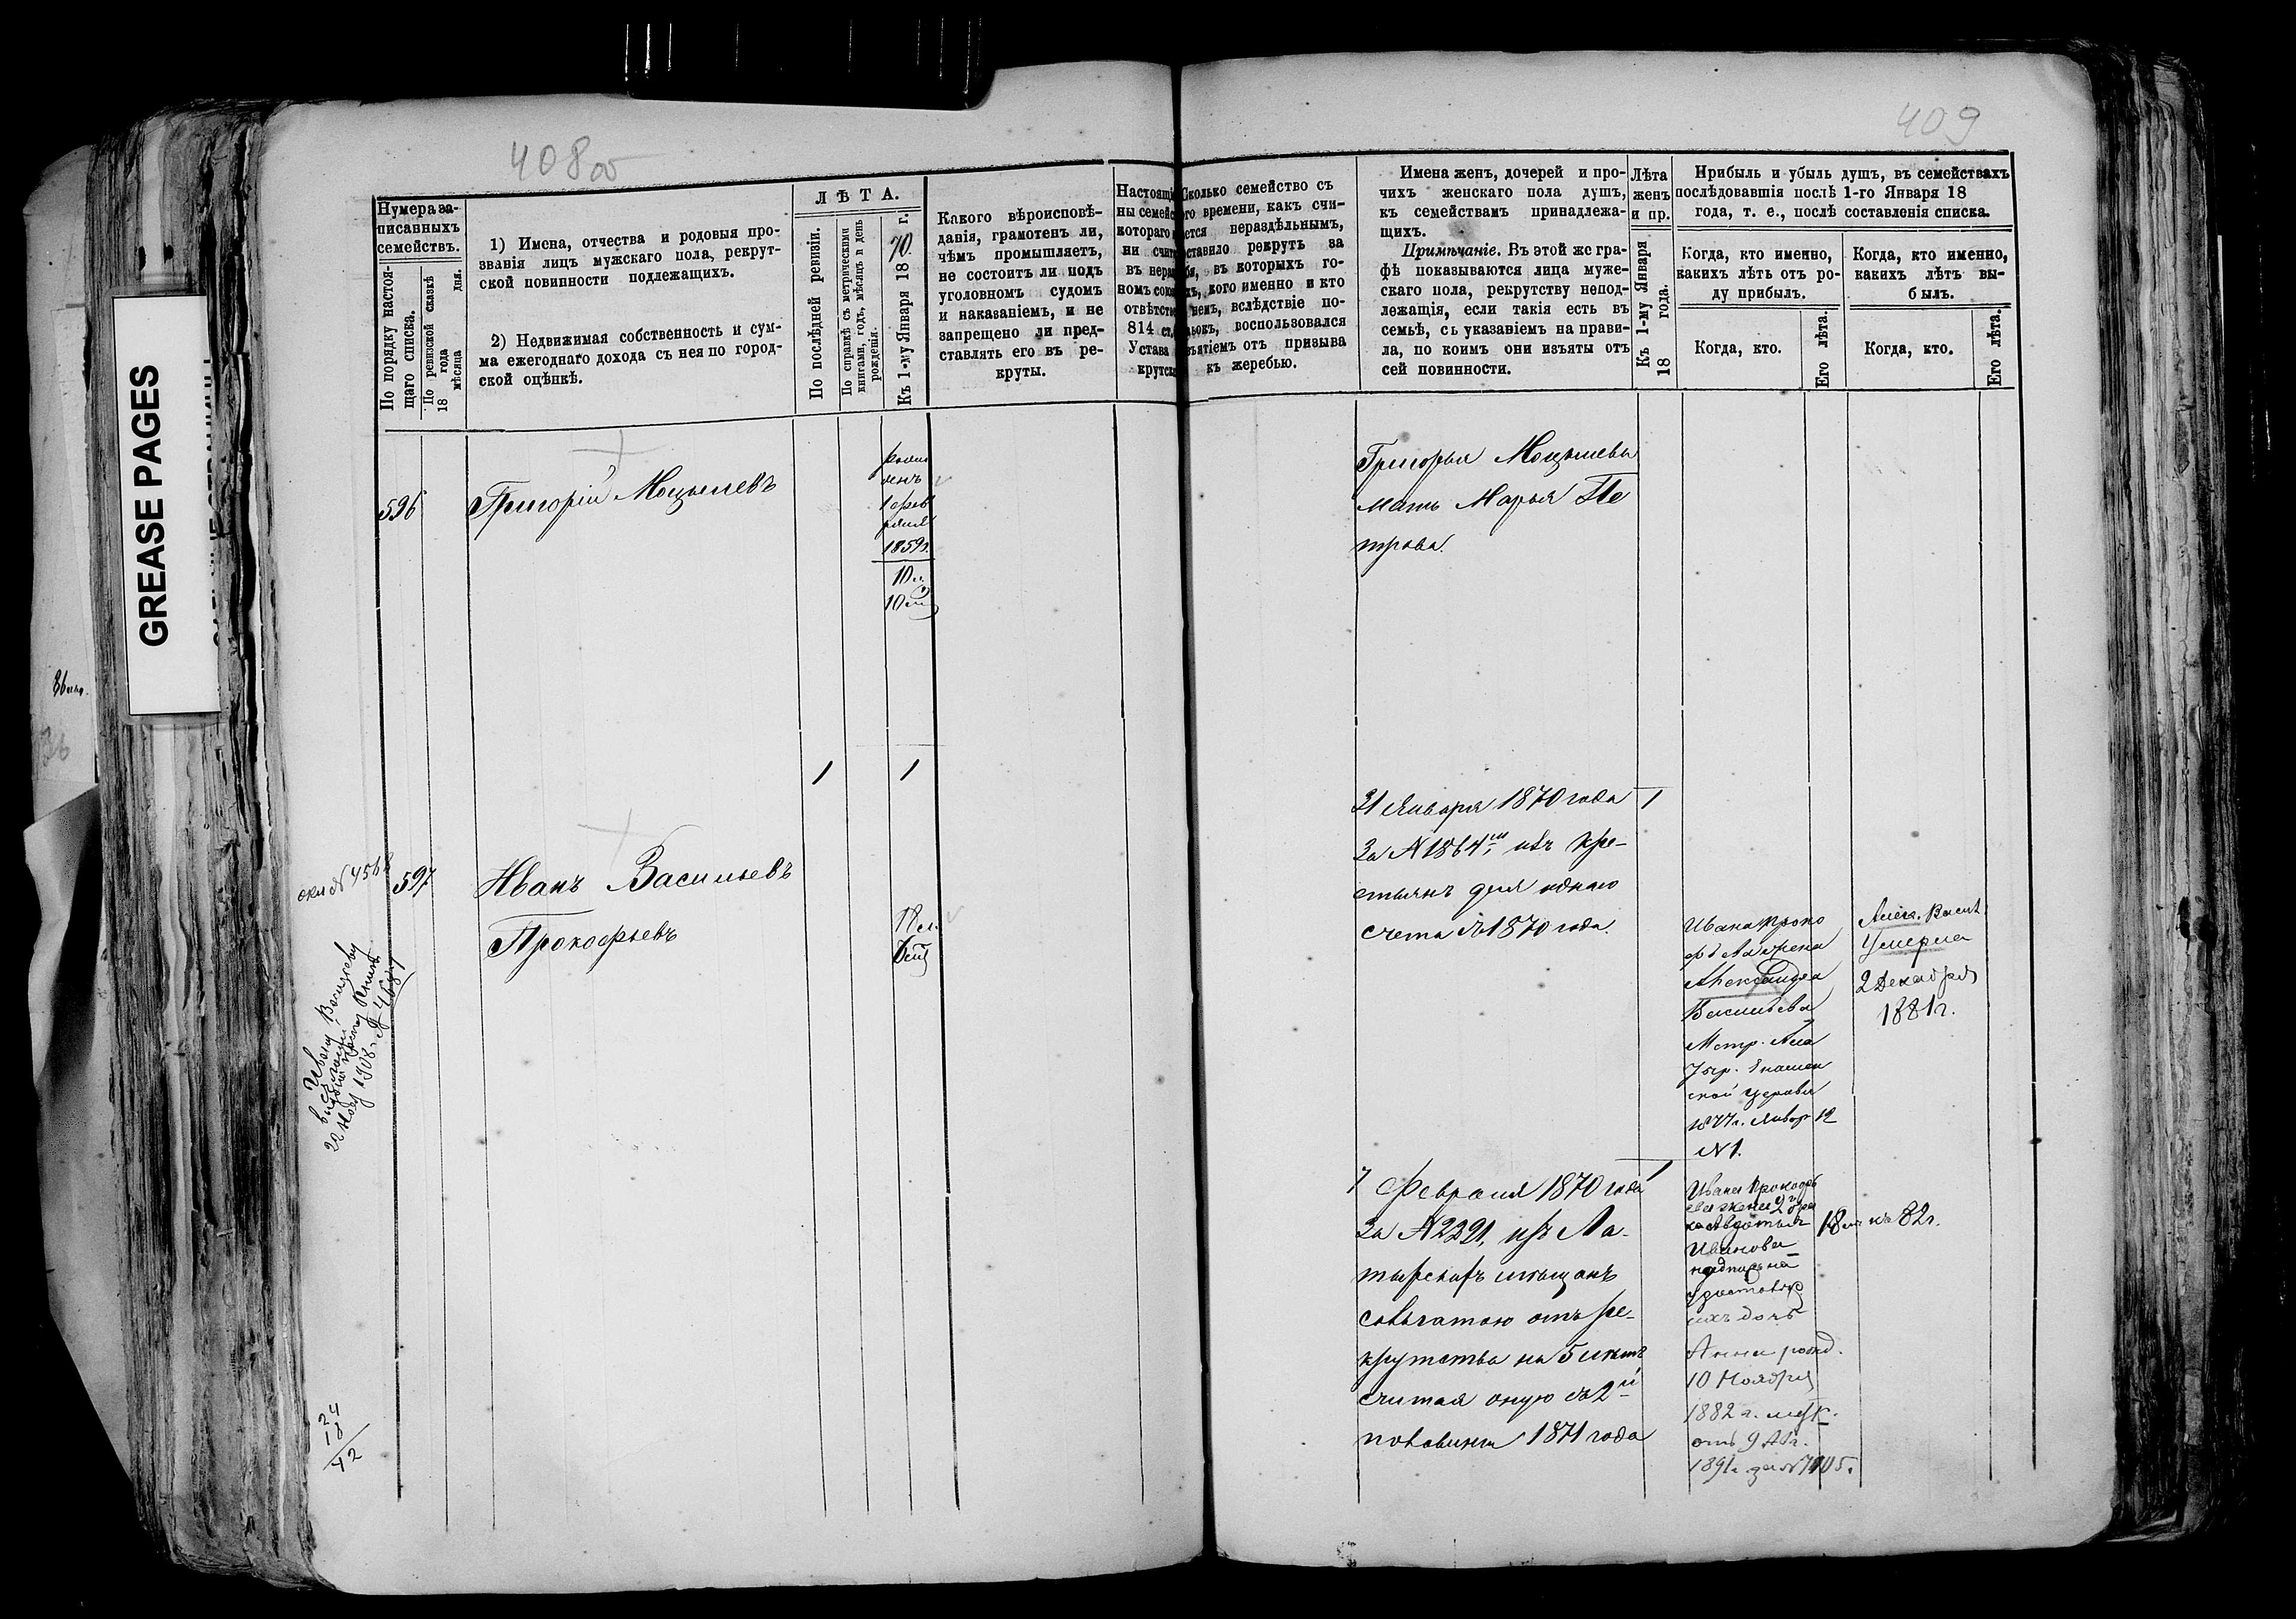 408 об
409
GREASE PAGES
Нумера за-
писанныхъ
семействъ.
По порядку настоя-
щаго списка.
По ревизской сказкѣ
18 года
мѣсяца дня.
1) Имена, отчества и родовыя про-
званія лицъ мужскаго пола, рекрут-
ской повинности подлежащихъ.
2) Недвижимая собственность и сум-
ма ежегоднаго дохода съ нея по город-
ской оцѣнкѣ.
ЛѢТА.
По послѣдней ревизіи.
По справкѣ съ метрическими
книгами, годъ, мѣсяцъ и день
рожденія.
Къ 1-му Января 1870 г.
Какого вѣроисповѣ-
данія, грамотенъ ли,
чѣмъ промышляетъ,
не состоитъ ли подъ
уголовномъ судомъ
и наказаніемъ, и не
запрещено ли пред-
ставлять его въ ре-
круты.
Настоящі
ны семейс
котораго
ни счит
въ нера
номъ сою
отвѣтств
814 ст.
Устава
крутск
Сколько семейство съ
го времени, какъ счи-
ется нераздѣльнымъ,
оставило рекрутъ за
бя, въ которыхъ го-
хъ, кого именно и кто
немъ, вслѣдствіе по-
ьокъ, воспользовался
зъятіемъ отъ призыва
къ жеребью.
Имена женъ, дочерей и про-
чихъ женскаго пола душъ,
къ семействамъ принадлежа-
щихъ.
Примѣчаніе. Въ этой же гра-
фѣ показываются лица муже-
скаго пола, рекрутству непод-
лежащія, если такія есть въ
семьѣ, съ указаніемъ на прави-
ла, по коимъ они изъяты отъ
сей повинности.
Лѣта
женъ
и пр.
Къ 1-му Января
18 года.
Прибыль и убыль душъ, въ семействахъ
послѣдовавшія послѣ 1-го Января 18
года, т. е., послѣ составленія списка.
Когда, кто именно,
какихъ лѣтъ отъ ро-
ду прибылъ.
Когда, кто.
Его лѣта.
Когда, кто именно,
какихъ лѣтъ вы-
былъ.
Когда, кто.
Его лѣта.
596
Григорій Мощылевъ
рож
денъ
1 фев
раля
1859 г.
10 л.
10 м
1 1
Григорья
мать Марья Пе
трова.
597
Иванъ Васильевъ
Прокофьевъ
18 л.
31 Января 1870 года 1
За № 1864м, изъ кре-
стьянъ для однаго
счета съ 1870 года.
Ивана Проко
фьева жена
Александра
Васильева
Метр.
церкви
1877 г. Январ 12
№ 1.
Алек. Васил.
Умерла
2 Декабря
1881 г.
7 Февраля 1870 года 1
За № 2291, изъ Ла-
тырскихъ мѣщанъ
отъ ре-
крутства на 5 лѣтъ
считая оную съ 2й
половины 1871 года
Ивана Прокофь
ева жена 2 бра
ка Авдотья
Иванова
18 л. къ 82 г.
ихъ дочь
Анна рожд.
10 Ноября
1882 г.
отъ 9 Авг.
1891 г. за № 7105.
Ивану Васильеву
24
18
42